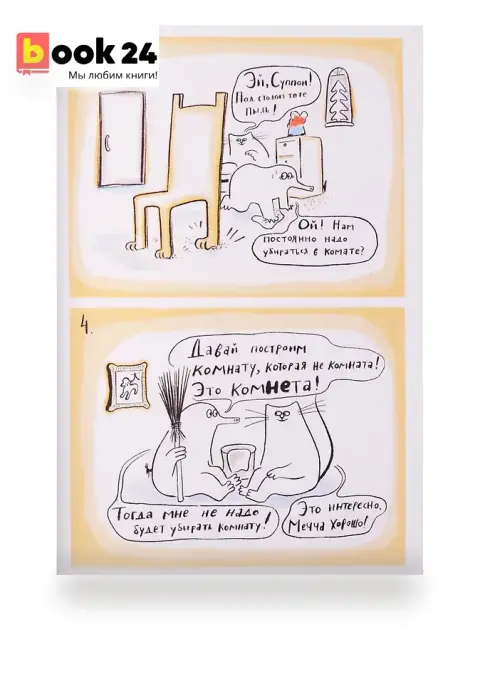 book 24
Мы любим книги!
Эй, Суппон!
Под столом тоже
пыль!
Ой! Нам
постоянно надо
убираться в комате?
4.
Давай построим
комнату, которая не комната!
Это комнета!
Тогда мне не надо
будет убирать комнату!
Это интересно.
Мечча хорошо!